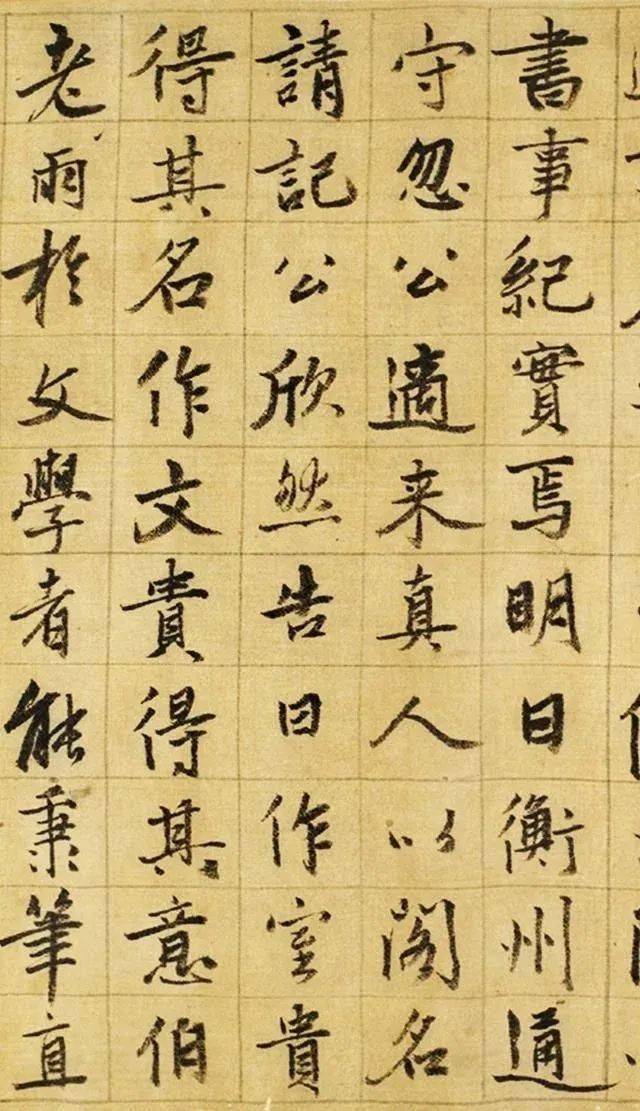 書事紀實焉明日衡州通
守忽公適来真人以閣名
請記公欣然告曰作室貴
得其名作文貴得其意伯
老雨於文學者能秉筆直